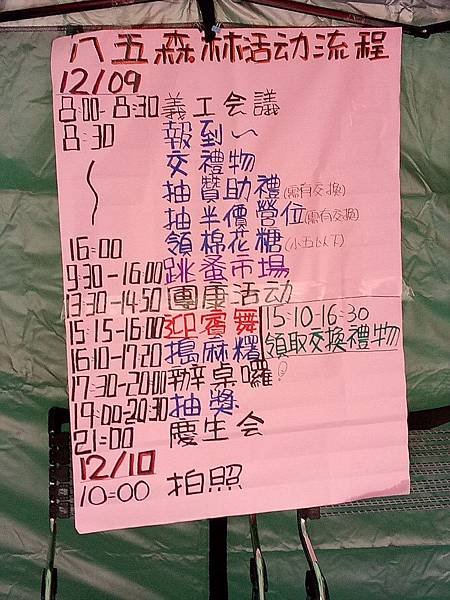 八五森林活动流程
12/09
8:00-8:30義工会議
8:30 報到~
交禮物
抽贊助禮(需有交換)
抽半價營位(需有交換)
16:00 領棉花糖(小五以下)
9:30-16:00跳蚤市場
13:30-14:50團康活动
15:15-16:00迎賓舞
15:10-16:30
領取交換禮物
16:10-17:20搗麻糬
17:30-20:00辦桌囉!
19:00-20:30抽獎
21:00 慶生会
12/10
10:00 拍照